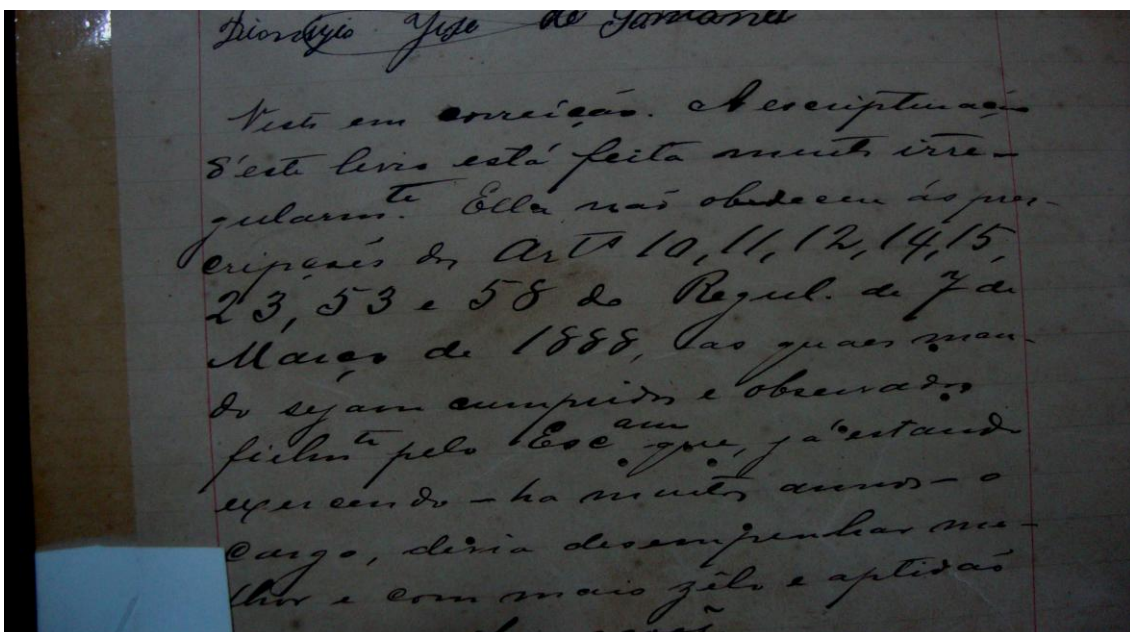 de Santana
Visto em correição. A escripturação
d'este livro está feita muito irre-
gularmte. Ella não obedeceu ás pres-
cripções dos Arts 10, 11, 12, 14, 15,
23, 53 e 58 do Regul. de 7 de
Março de 1888, as quaes man-
do sejam cumpridos e observados
fielmte pelo Escam que, já estando
exercendo - ha muitos annos - o
cargo, devia desempenhar me-
lhor e com mais zêlo e aptidão